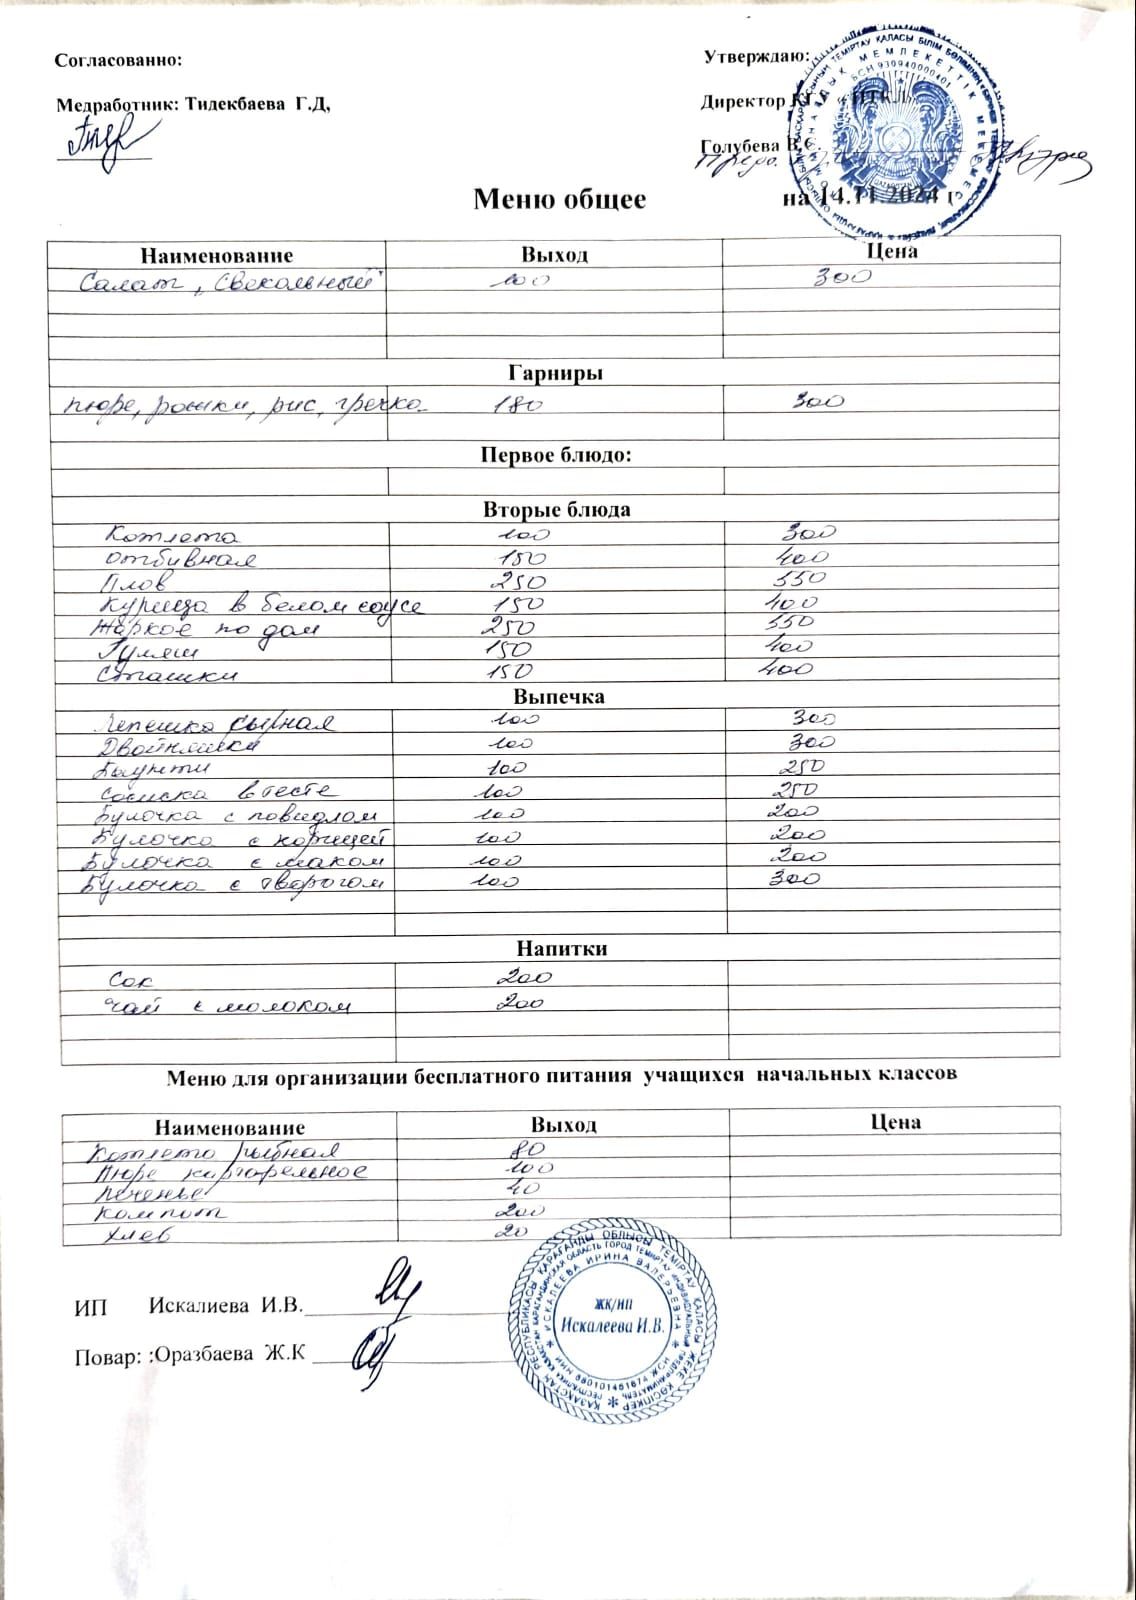 Согласованно:
Утверждаю:
Медработник: Тидекбаева Г.Д,
Директор
Голубева В.С.
Меню общее на 14.11.2024 г
Наименование Выход Цена
Салат, свекольный 100 300
Гарниры
пюре, рожки, рис, гречка 180 300
Первое блюдо:
Вторые блюда
Котлета 100 300
отбивная 150 400
Плов 250 550
Курица в белом соусе 150 400
Жаркое по дом 250 550
Гуляш 150 400
Сташки 150 400
Выпечка
Лепешка сырная 100 300
Двойняшки 100 300
Баунти 100 250
Сосиска в тесте 100 250
Булочка с повидлом 100 200
Булочка с корицей 100 200
Булочка с маком 100 200
Булочка с творогом 100 300
Напитки
Сок 200
Чай с молоком 200
Меню для организации бесплатного питания учащихся начальных классов
Наименование Выход Цена
Котлета рыбная 80
Пюре картофельное 100
Печенье 40
Компот 200
Хлеб 20
ИП Искалиева И.В.
Повар: :Оразбаева Ж.К
ЖК/ИП
Искалеева И.В.
ИСКАЛЕЕВА ИРИНА ВАЛЕРЬЕВНА